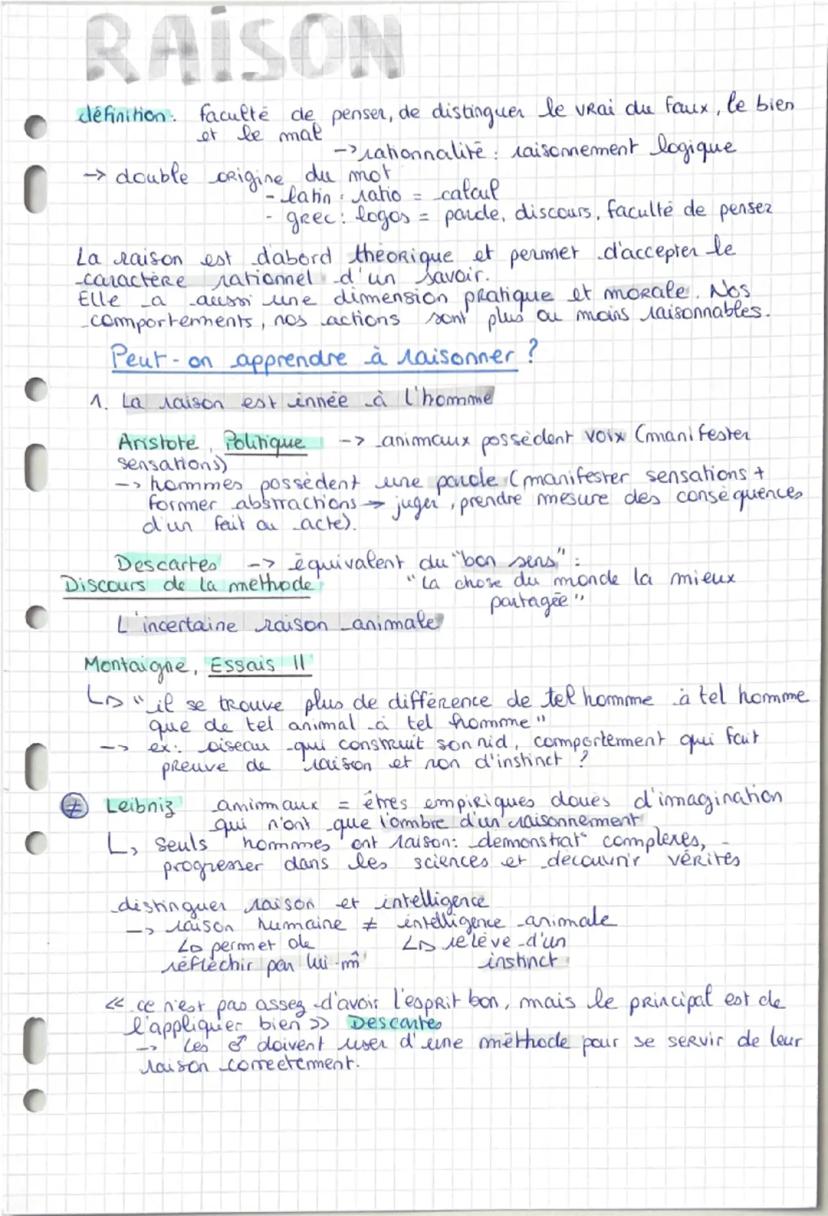 RAISON
définition : faculté de penser, de distinguer le vrai du faux, le bien
et le mal
-> rationnalité : raisonnement logique
-> double origine du mot
- latin : ratio = calcul
- grec : logos = parole, discours, faculté de penser
La raison est d'abord théorique et permet d'accepter le
caractère rationnel d'un savoir.
Elle a aussi une dimension pratique et morale. Nos
comportements, nos actions sont plus ou moins raisonnables.
Peut-on apprendre à raisonner ?
1. La raison est innée à l'homme
Aristote, Politique -> animaux possèdent voix (manifester
sensations)
-> hommes possèdent une parole (manifester sensations +
former abstractions -> juger, prendre mesure des conséquences
d'un fait ou acte).
Descartes -> équivalent du "bon sens" :
Discours de la méthode "La chose du monde la mieux
partagée"
L'incertaine raison animale
Montaigne, Essais II
↳ "il se trouve plus de différence de tel homme à tel homme
que de tel animal à tel homme"
-> ex : oiseau qui construit son nid, comportement qui fait
preuve de raison et non d'instinct ?
≠ Leibniz animmaux = êtres empiriques doués d'imagination
qui n'ont que l'ombre d'un raisonnement
↳ seuls hommes ont raison : demonstrat° complexes,
progresser dans les sciences et découvrir vérités
distinguer raison et intelligence
-> raison humaine ≠ intelligence animale
↳ permet de ↳ relève d'un
réfléchir par lui-m̂ instinct
« ce n'est pas assez d'avoir l'esprit bon, mais le principal est de
l'appliquer bien » Descartes
-> Les ♂ doivent user d'une méthode pour se servir de leur
raison correctement.